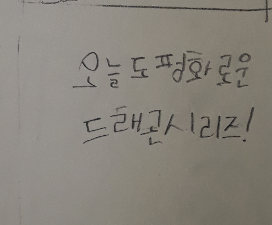 오늘도 평화로운
드래곤시리즈!